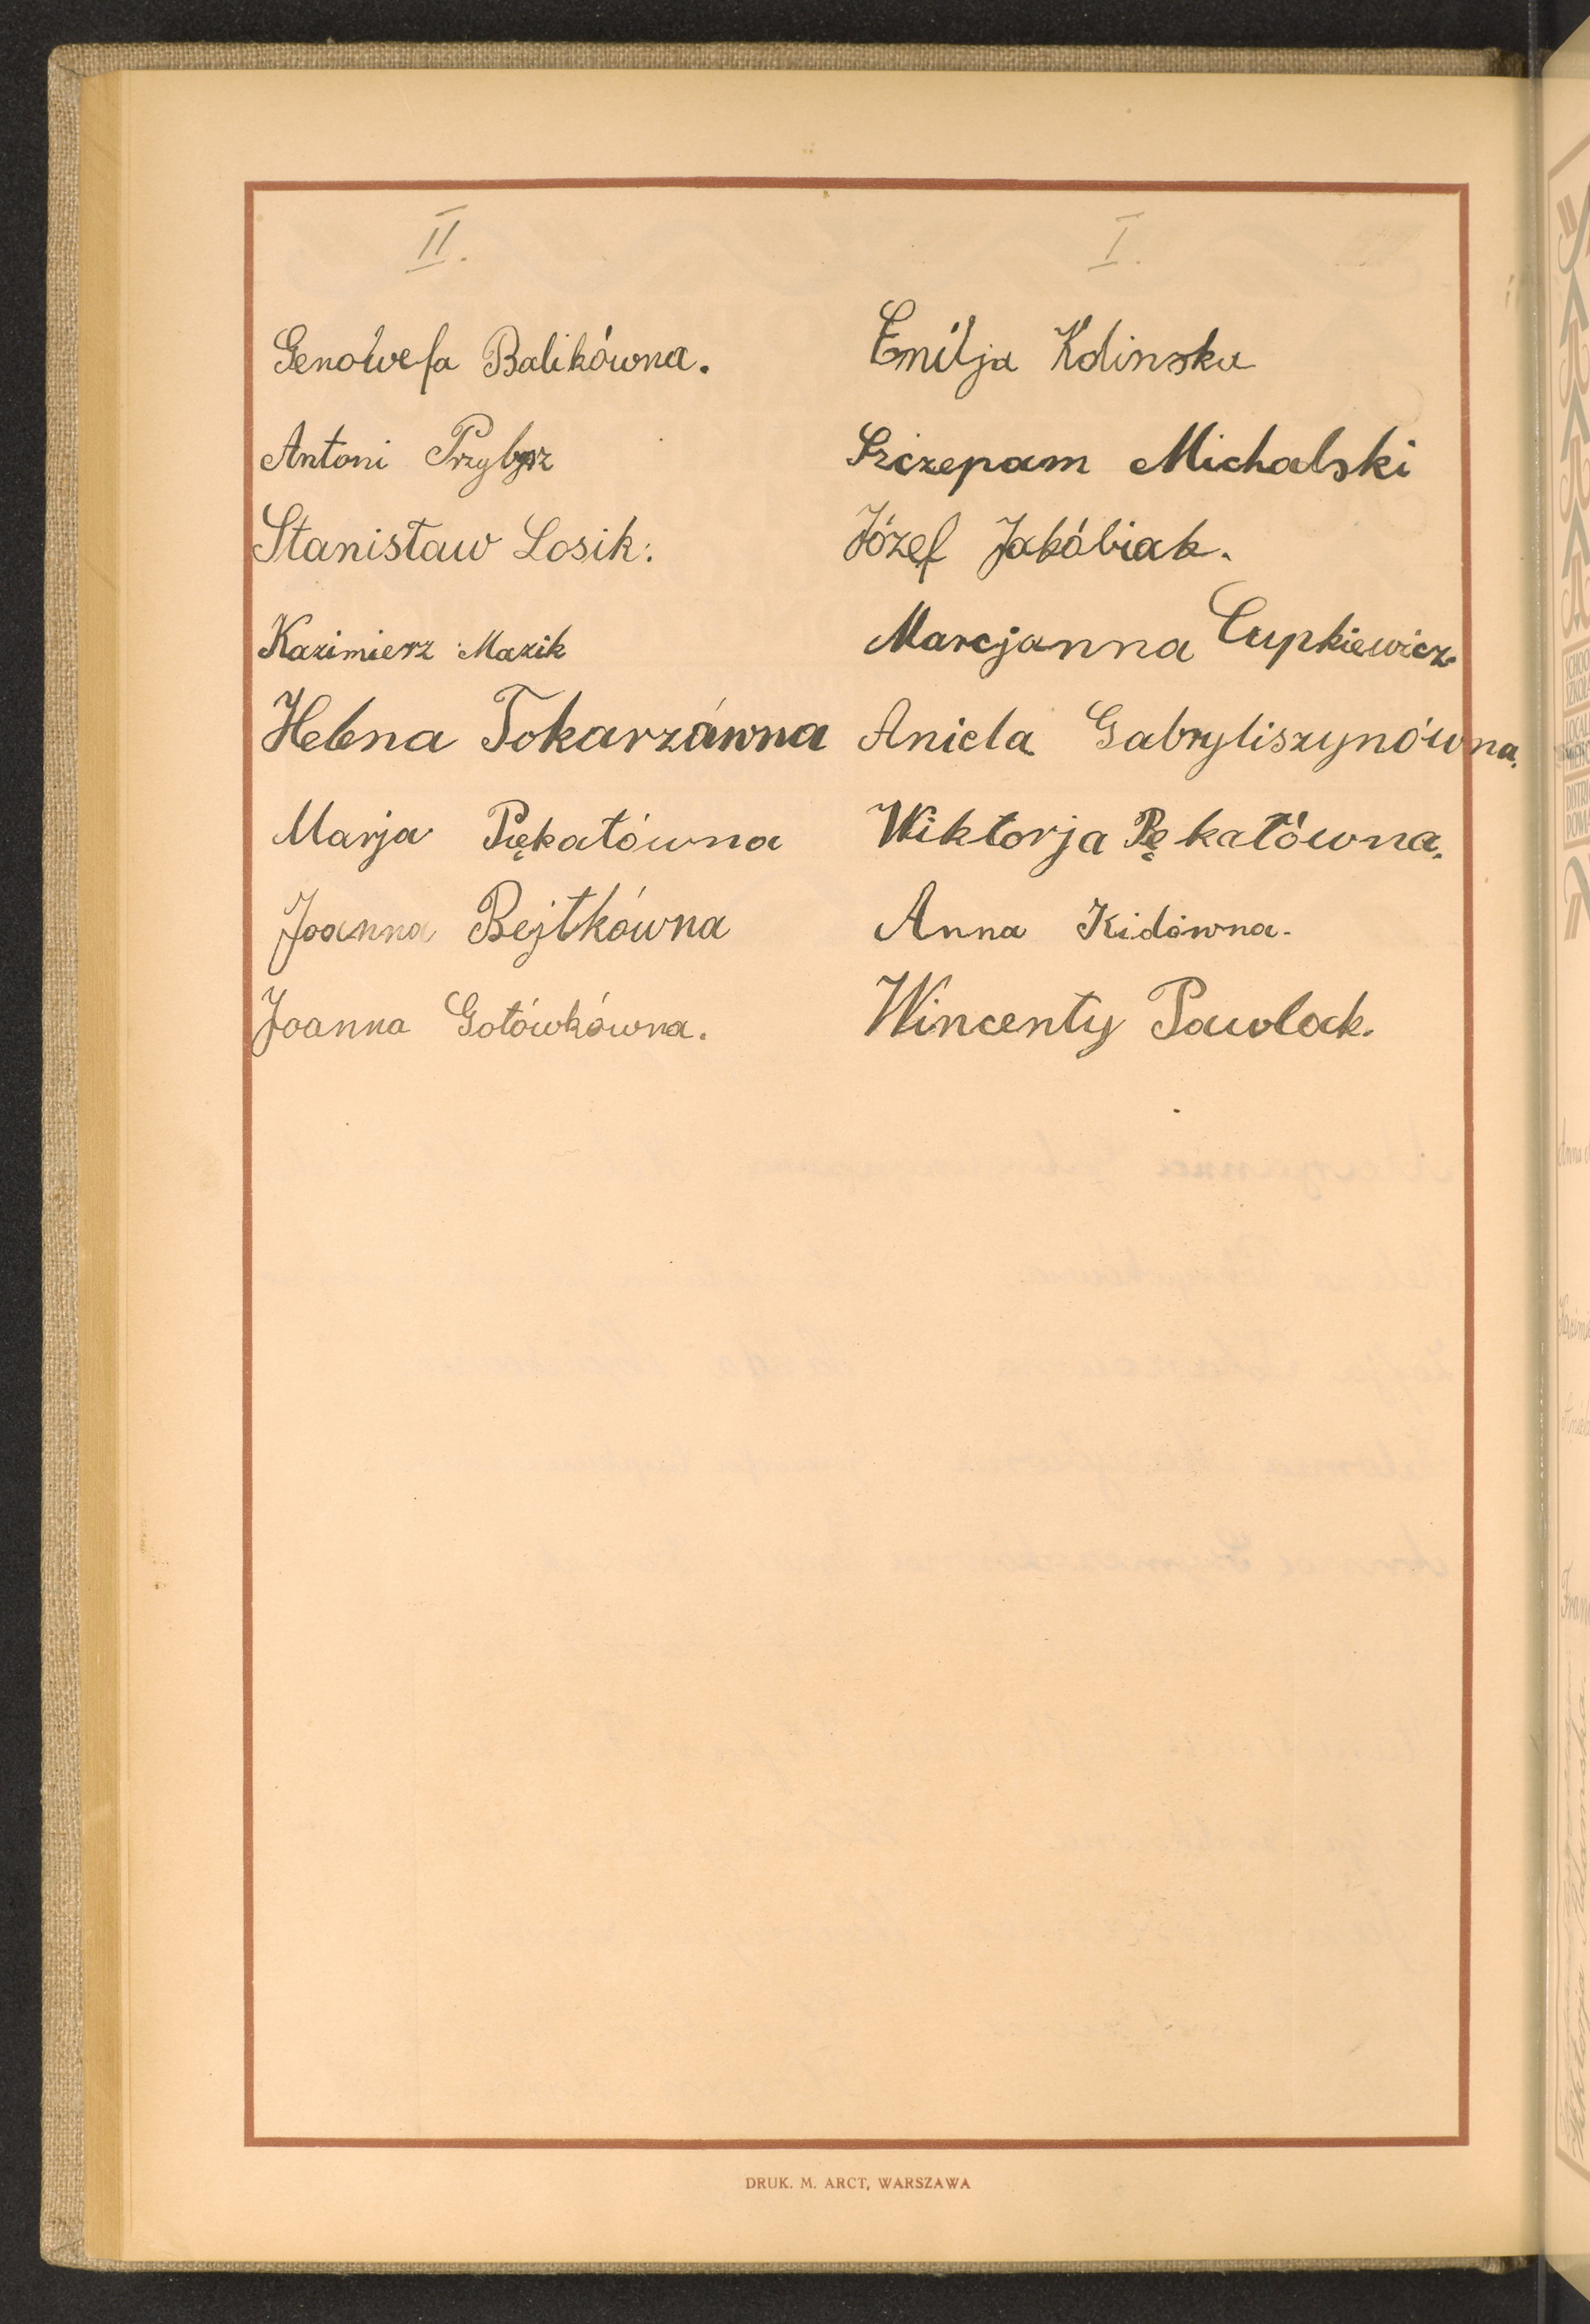 II.
Genowefa Balikówna.
Antoni Przybysz
Stanisław Losik.
Kazimierz Mazik
Helena Tokarzówna
Marja Piękatówna
Joanna Bejtkówna
Joanna Gotówkówna.
I.
Emilja Kolinska
Szczepam Michalski
Józef Jakóbiak.
Marcjanna Cupkiewicz.
Aniela Gabryliszynówna.
Wiktorja Pękatówna.
Anna Kidówna.
Wincenty Pawlack.
DRUK. M. ARCT, WARSZAWA